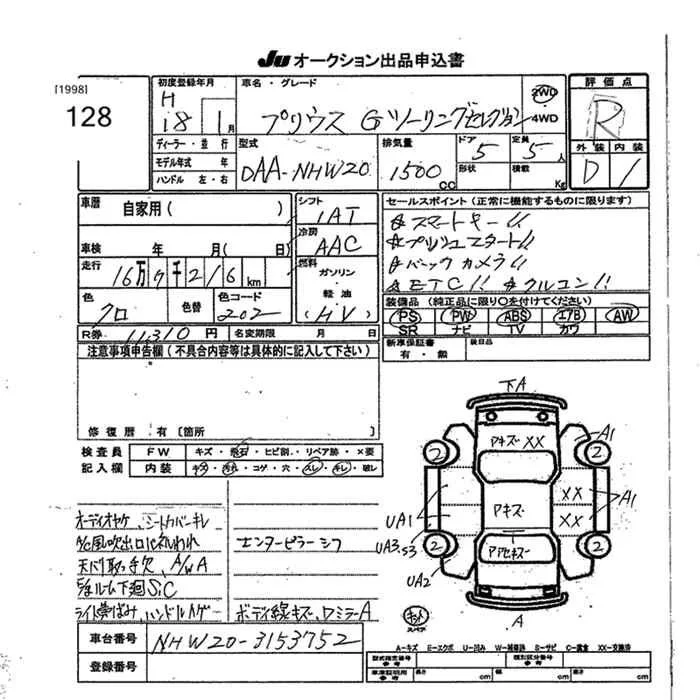 Ju オークション出品申込書
[1998]
128
初度登録年月
H
18 1月
車名・グレード
プリウス Gツーリングセレクション
2WD
4WD
評価点
R
外装 内装
D 1
ディーラー・並行
モデル年式 年
ハンドル 左・右
型式
DAA-NHW20
排気量
1500 cc
ドア
5
形状
定員
5人
積載
Kg
車歴
自家用( )
シフト
1AT
車検 年 月( 日)
冷房
AAC
走行
16万9千216km
燃料
ガソリン
・
軽油
・
(HV)
色
クロ
色替
色コード
202
セールスポイント(正常に機能するものに限ります)
☆スマートキー!!
☆プッシュスタート!!
☆バックカメラ!!
☆ETC!! ☆クルコン!!
装備品(純正品に限り○を付けてください)
PS PW ABS エアB AW
SR ナビ TV カワ
新車保証書
有・無
後日品
R券 11,310円 名変期限 月 日
注意事項申告欄(不具合内容等は具体的に記入して下さい)
修復歴 有〔箇所 〕
検査員
記入欄
FW キズ・飛石・ヒビ割・リペア跡・×要
内装 キズ・汚れ・コゲ・穴・スレ・キレ・破レ
オーディオヤケ、シートカバーキレ
A/C風吹出口
天バリ取っ手欠、A/WA
ルーム下廻S.C
センターピラーシワ
ハンドルハゲ
ボディ線キズ、ワミラーA
下A
アキズ XX
A1
2
2
アキズ
XX
XX
A1
UA1
UA3 S3
2
2
UA2
アアセキズ
A
スペア
車台番号 NHW20-3153752
登録番号
A-キズ E-エクボ U-凹み W-補修跡 S-サビ C-腐食 XX-交換済
型式指定番号
参考
類別区分番号
参考
車庫証明用
参考
長さ cm
幅 cm
高さ cm